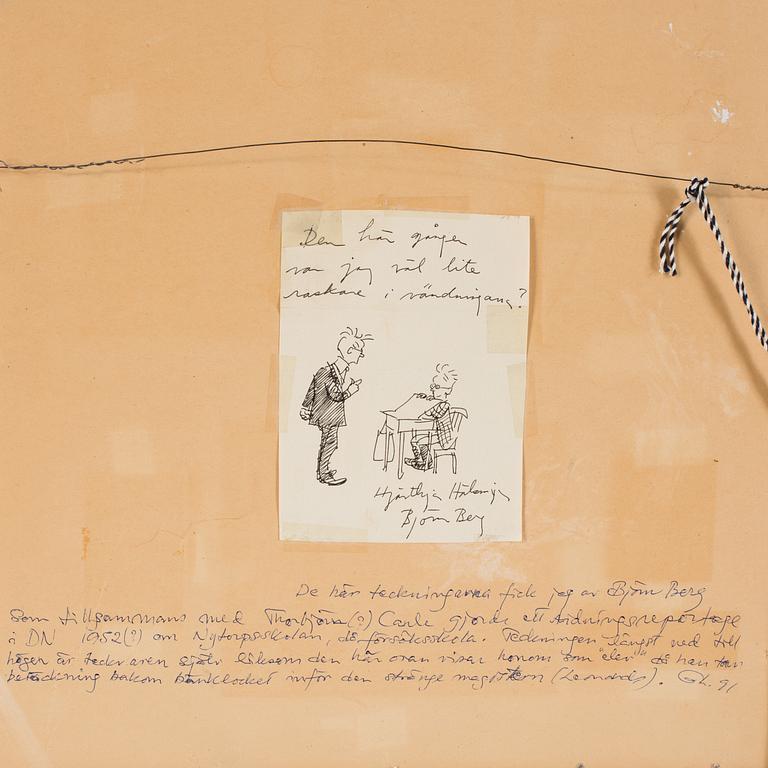 Den här gången
var jag väl lite
raskare i vändningarna?
Hjärtliga Hälsningar
Björn Berg
De här teckningarna fick jag av Björn Berg
som tillsammans med Thorbjörn(?) Carle gjorde ett tidningsreportage
i DN 1952(?) om Nytorpsskolan, då försöksskola. Teckningen längst ned till
höger är tecknaren själv liksom den här ovan visar honom som "elev" då han tar
betäckning bakom bänklocket inför den stränge magistern (Leonards). GL. 91